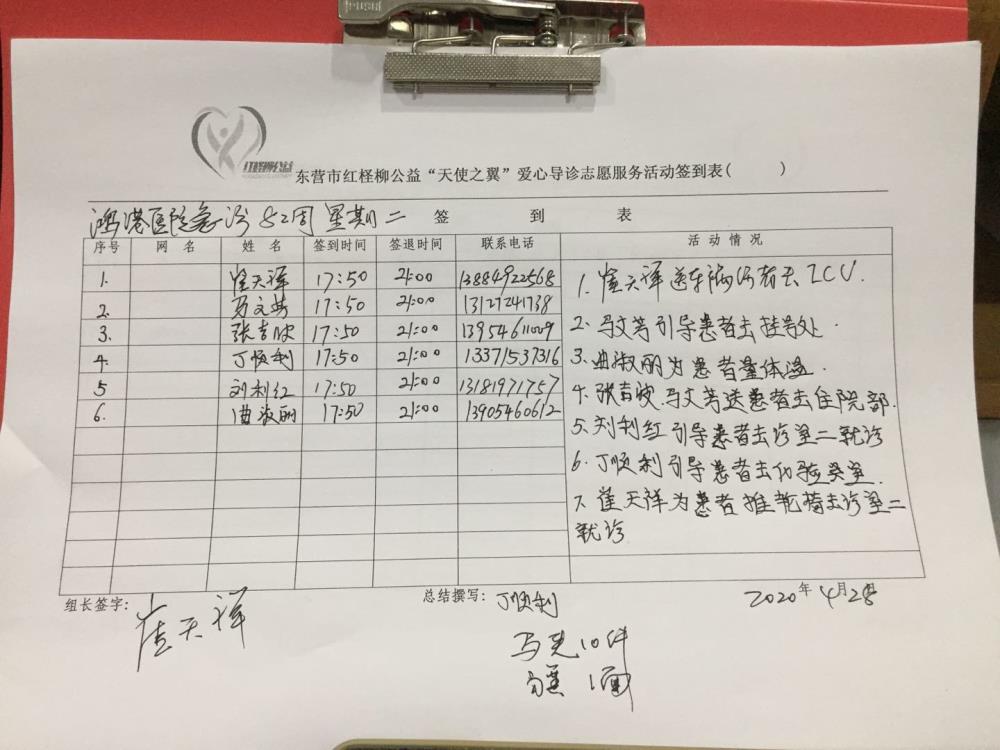 红柽柳公益
东营市红柽柳公益“天使之翼”爱心导诊志愿服务活动签到表( )
鸿港医院急诊 82周 星期二 签 到 表
序号 网 名 姓 名 签到时间 签退时间 联系电话 活 动 情 况
1. 崔天祥 17:50 21:00 13884922568
2. 马文芳 17:50 21:00 13127241738
3. 张吉波 17:50 21:00 13954611009
4. 丁顺利 17:50 21:00 13371537316
5 刘利红 17:50 21:00 13181971757
6. 曲淑丽 17:50 21:00 13905460612
1. 崔天祥送车祸伤者去ICU.
2. 马文芳引导患者去挂号处.
3. 曲淑丽为患者量体温.
4. 张吉波.马文芳送患者去住院部.
5. 刘利红引导患者去诊室二就诊
6. 丁顺利引导患者去化验室.
7. 崔天祥为患者推轮椅去诊室二
就诊
组长签字: 崔天祥 总结撰写: 丁顺利 2020年4月28
马 10件
1面